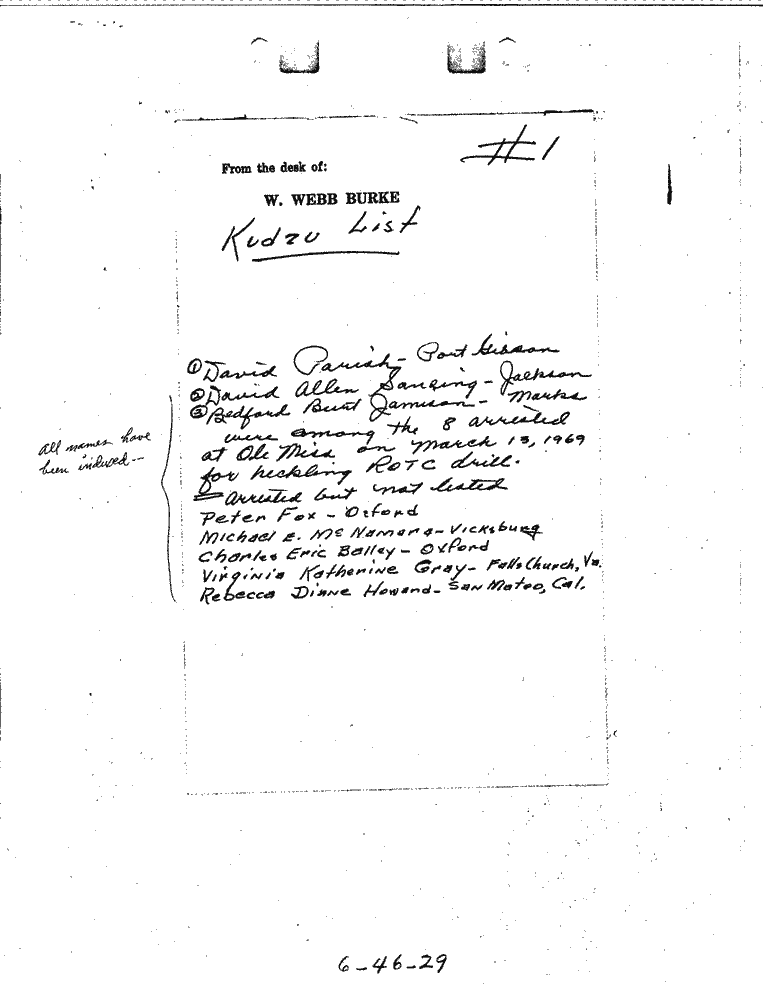 #1
From the desk of:
W. WEBB BURKE
Kudzu List
① David Parish - Port Gibson
② David Allen Sanqing - Jackson
③ Bedford Burt Jamison - Marks
were among the 8 arrested
at Ole Miss on March 13, 1969
for heckling ROTC drill.
= arrested but not listed
Peter Fox - Oxford
Michael E. McNamara - Vicksburg
Charles Eric Bailey - Oxford
Virginia Katherine Gray - Falls Church, Va.
Rebecca Diane Howard - San Mateo, Cal.
All names have
been indexed --
6-46-29